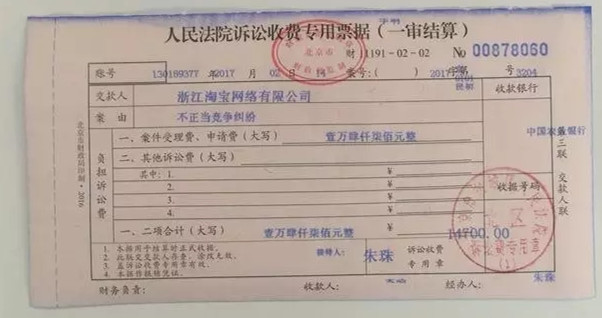 人民法院诉讼收费专用票据(一审结算)
北京市
财 1191-02-02 No 00878060
账号 130199377 2017年 02 月 案号:( ) 字 号 3204
交款人 浙江淘宝网络有限公司 收款银行
案由 不正当竞争纠纷
中国农业银行
负担诉讼费
一、案件受理费、申请费(大写) 壹万肆仟柒佰元整
二、其他诉讼费(大写) ¥
其中:1. ¥
2. ¥
3. ¥
4. ¥
收据号码
第三联 交款人联
一、二项合计(大写) 壹万肆仟柒佰元整 14700.00
1、本据用于结算时正式收据。
2、此联交交款人存查,涂改无效。
3、盖诉讼收费专用章有效。
4、本据作报核凭证。
接待人: 朱珠
诉讼收费专用章
(1)
财务负责: 收款人: 经办人: 朱珠
北京市财政局印制·2016